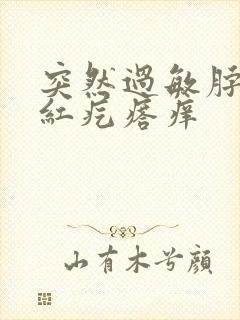 突然過敏脖
紅疙瘩痒
山有木兮顔